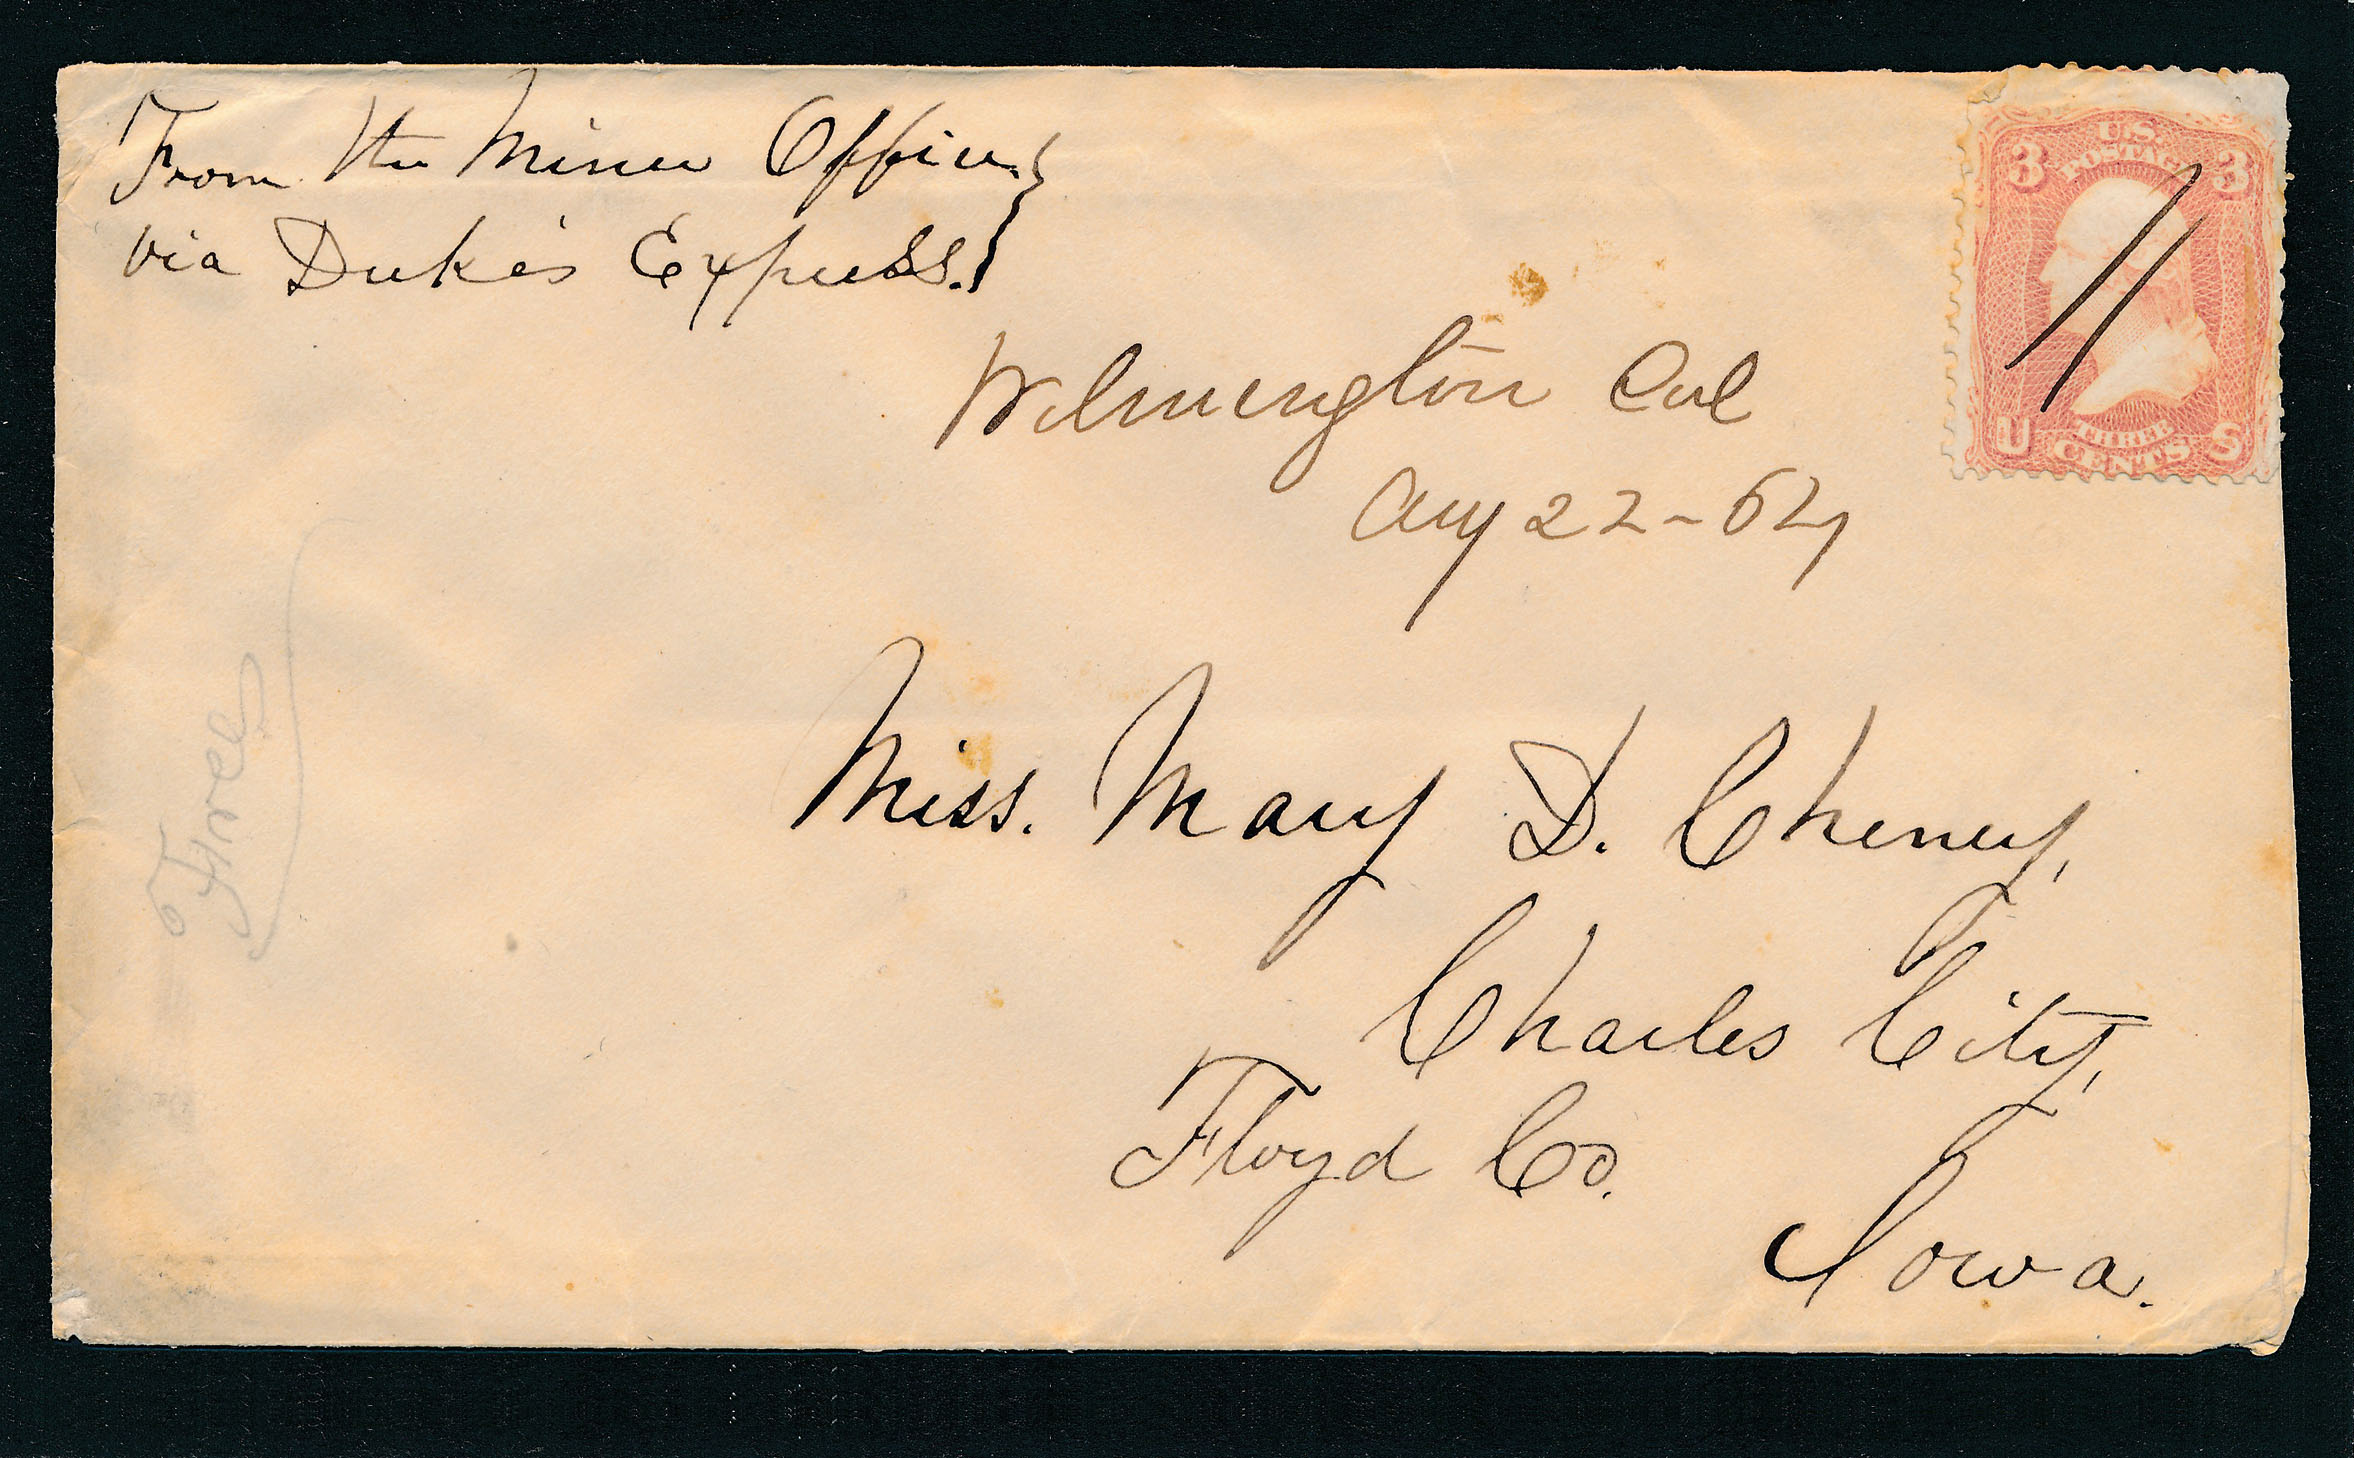 From the Miner Office.
via Duke's Express.
3 U.S. POSTAGE 3
U THREE CENTS S
Wilmington Cal
Aug 22-64
Free
Miss. Mary D. Cheney,
Charles City,
Floyd Co.
Iowa.